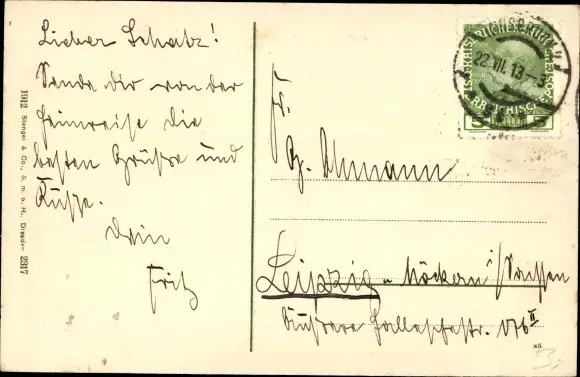 Lieber Schatz!
Sende dir von der
Heimreise die
besten Grüße und
Küsse.
Dein
Fritz
1912 Stengel & Co., G. m. b. H., Dresden 2317
22.VII.13
Fr.
G.
Leipzig - Möckern i/Sachsen
Äußere Hallesche str. 176 II